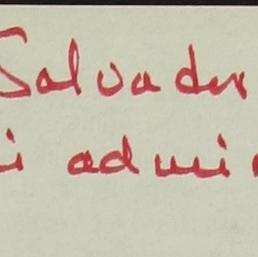 Salvador
i admi